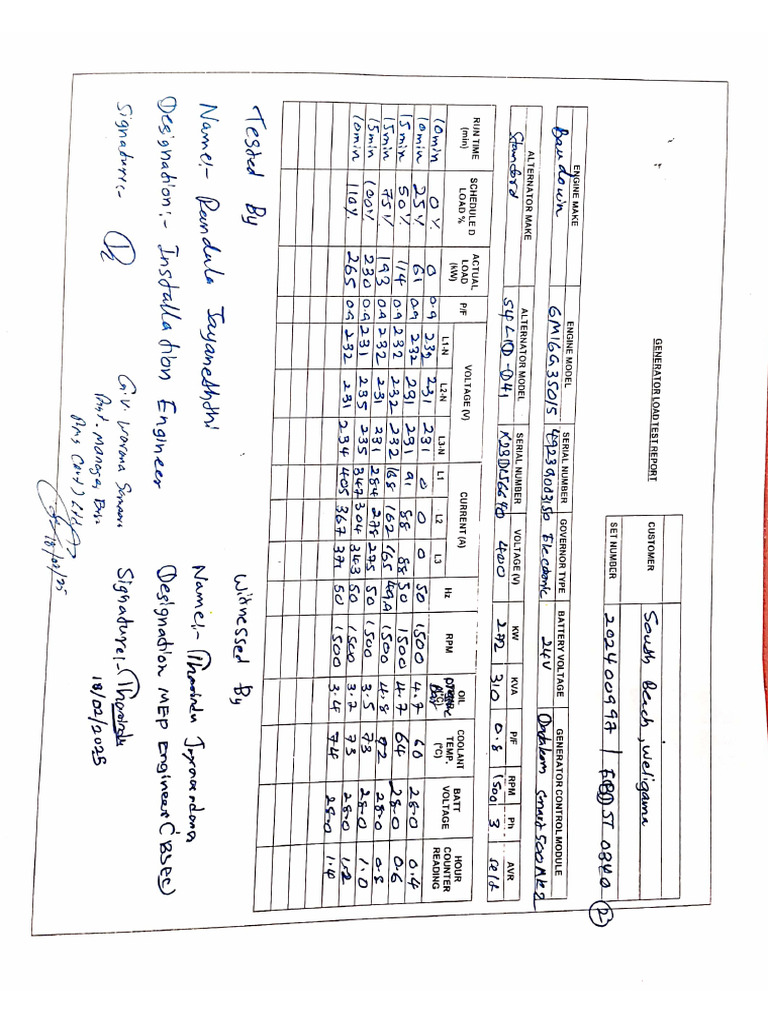 GENERATOR LOAD TEST REPORT
CUSTOMER South Beach, Weligama
SET NUMBER 20240099A / 0840
ENGINE MAKE ENGINE MODEL SERIAL NUMBER GOVERNOR TYPE BATTERY VOLTAGE GENERATOR CONTROL MODULE
Baudouin 6M16G350/5 Electronic 24V Smart 500 Mk2
ALTERNATOR MAKE ALTERNATOR MODEL SERIAL NUMBER VOLTAGE (V) KW KVA P/F RPM Ph AVR
Stamford S4L1D-D41 400 310 0.8 1500 3 Self
RUN TIME (min) SCHEDULED LOAD % ACTUAL LOAD (kW) P/F VOLTAGE (V) CURRENT (A) Hz RPM OIL pressure Bar COOLANT TEMP. (°C) BATT VOLTAGE HOUR COUNTER READING
L1-N L2-N L3-N L1 L2 L3
10min 0% 0 0.9 232 231 231 0 0 0 50 1500 4.7 60 28.0 0.4
10min 25% 61 0.9 232 231 231 91 88 88 50 1500 4.7 64 28.0 0.6
15min 50% 114 0.9 232 232 232 168 162 165 1500 4.8 72 28.0 0.8
15min 75% 193 0.9 232 231 231 284 278 275 50 1500 3.5 73 28.0 1.0
15min 100% 230 0.9 231 235 235 347 304 343 50 1500 3.2 73 28.0 1.2
10min 110% 265 0.9 232 231 234 405 367 371 50 1500 3.4 74 28.0 1.4
Tested By
Name:- Randula
Designation:- Installation Engineer
Signature:-
G.V. Warna
18/02/25
Witnessed By
Name:- Tharindu
Designation MEP Engineer (BSEC)
Signature:- Tharindu
18/02/2025